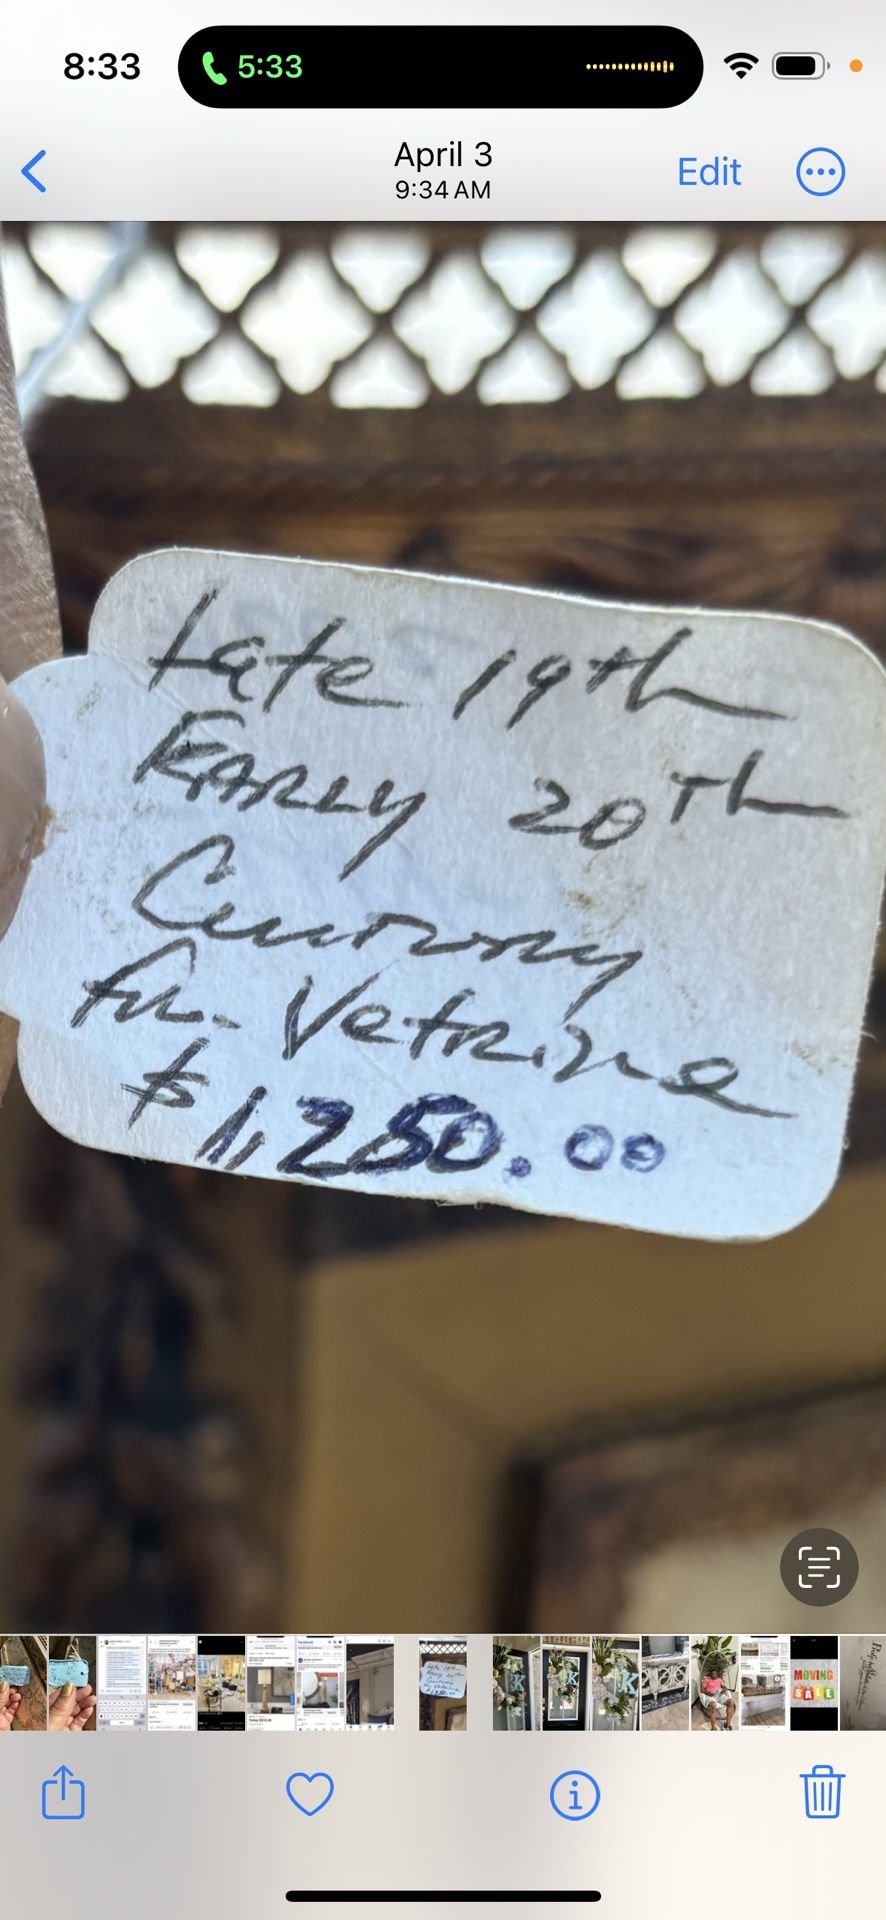 8:33
5:33
April 3
9:34 AM
Edit
Late 19th
EARLY 20Th
Century
Fr. Vetrine
$1,250.00
K
K
K
MOVING
SALE